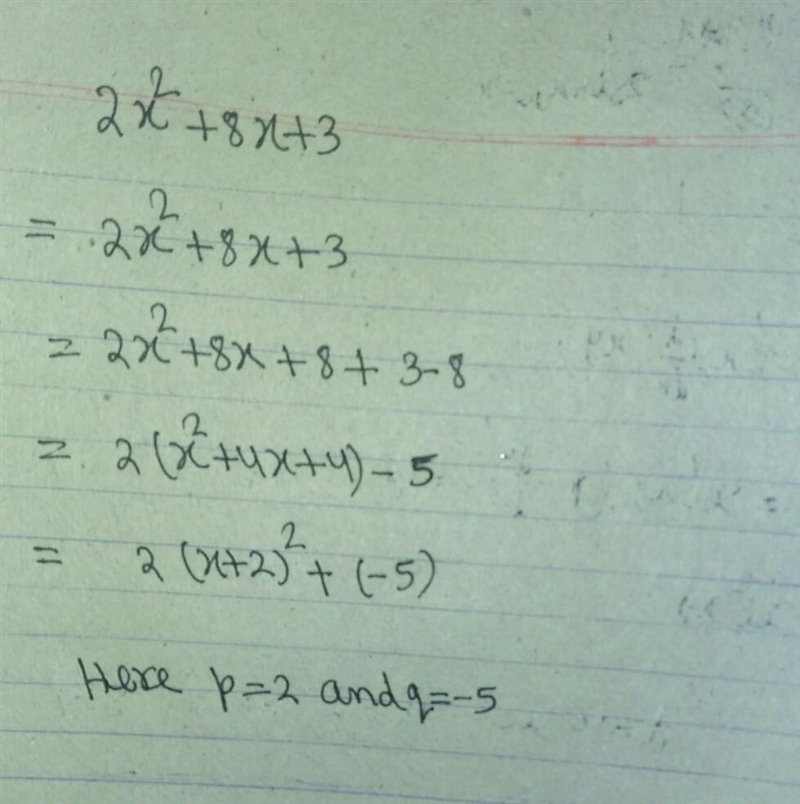 2x² + 8x + 3
= 2x² + 8x + 3
= 2x² + 8x + 8 + 3 - 8
= 2(x² + 4x + 4) - 5
= 2(x+2)² + (-5)
Here p = 2 and q = -5